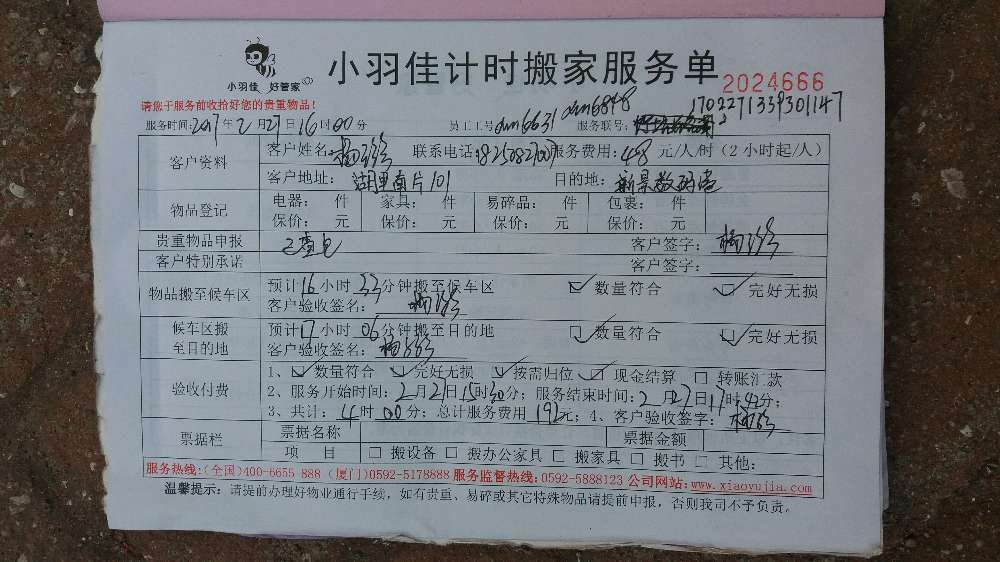 小羽佳计时搬家服务单
小羽佳 好管家
2024666
请您于服务前收拾好您的贵重物品！
1702271339301147
服务时间：2017年2月27日16时00分 员工工号 服务联号：
客户资料 客户姓名： 联系电话 服务费用：48元/人/时（2小时起/人）
客户地址：湖里南片101 目的地：新景数码港
物品登记 电器： 件 家具： 件 易碎品： 件 包裹： 件
保价： 元 保价： 元 保价： 元 保价： 元
贵重物品申报 已查包 客户签字：
客户特别承诺 客户签字：
物品搬至候车区 预计16小时33分钟搬至候车区 数量符合 完好无损
客户验收签名：
候车区搬至目的地 预计17小时06分钟搬至目的地 数量符合 完好无损
客户验收签名：
验收付费 1、数量符合 完好无损 按需归位 现金结算 转账汇款
2、服务开始时间：2月27日15时30分；服务结束时间：2月27日17时42分；
3、共计：4时00分；总计服务费用192元；4、客户验收签字：
票据栏 票据名称 票据金额
项 目 搬设备 搬办公家具 搬家具 搬书 其他：
服务热线：（全国）400-6655 888（厦门）0592-5178888 服务监督热线：0592-5888123 公司网站：www.xiaoyujia.com
温馨提示：请提前办理好物业通行手续，如有贵重、易碎或其它特殊物品请提前申报，否则我司不予负责。